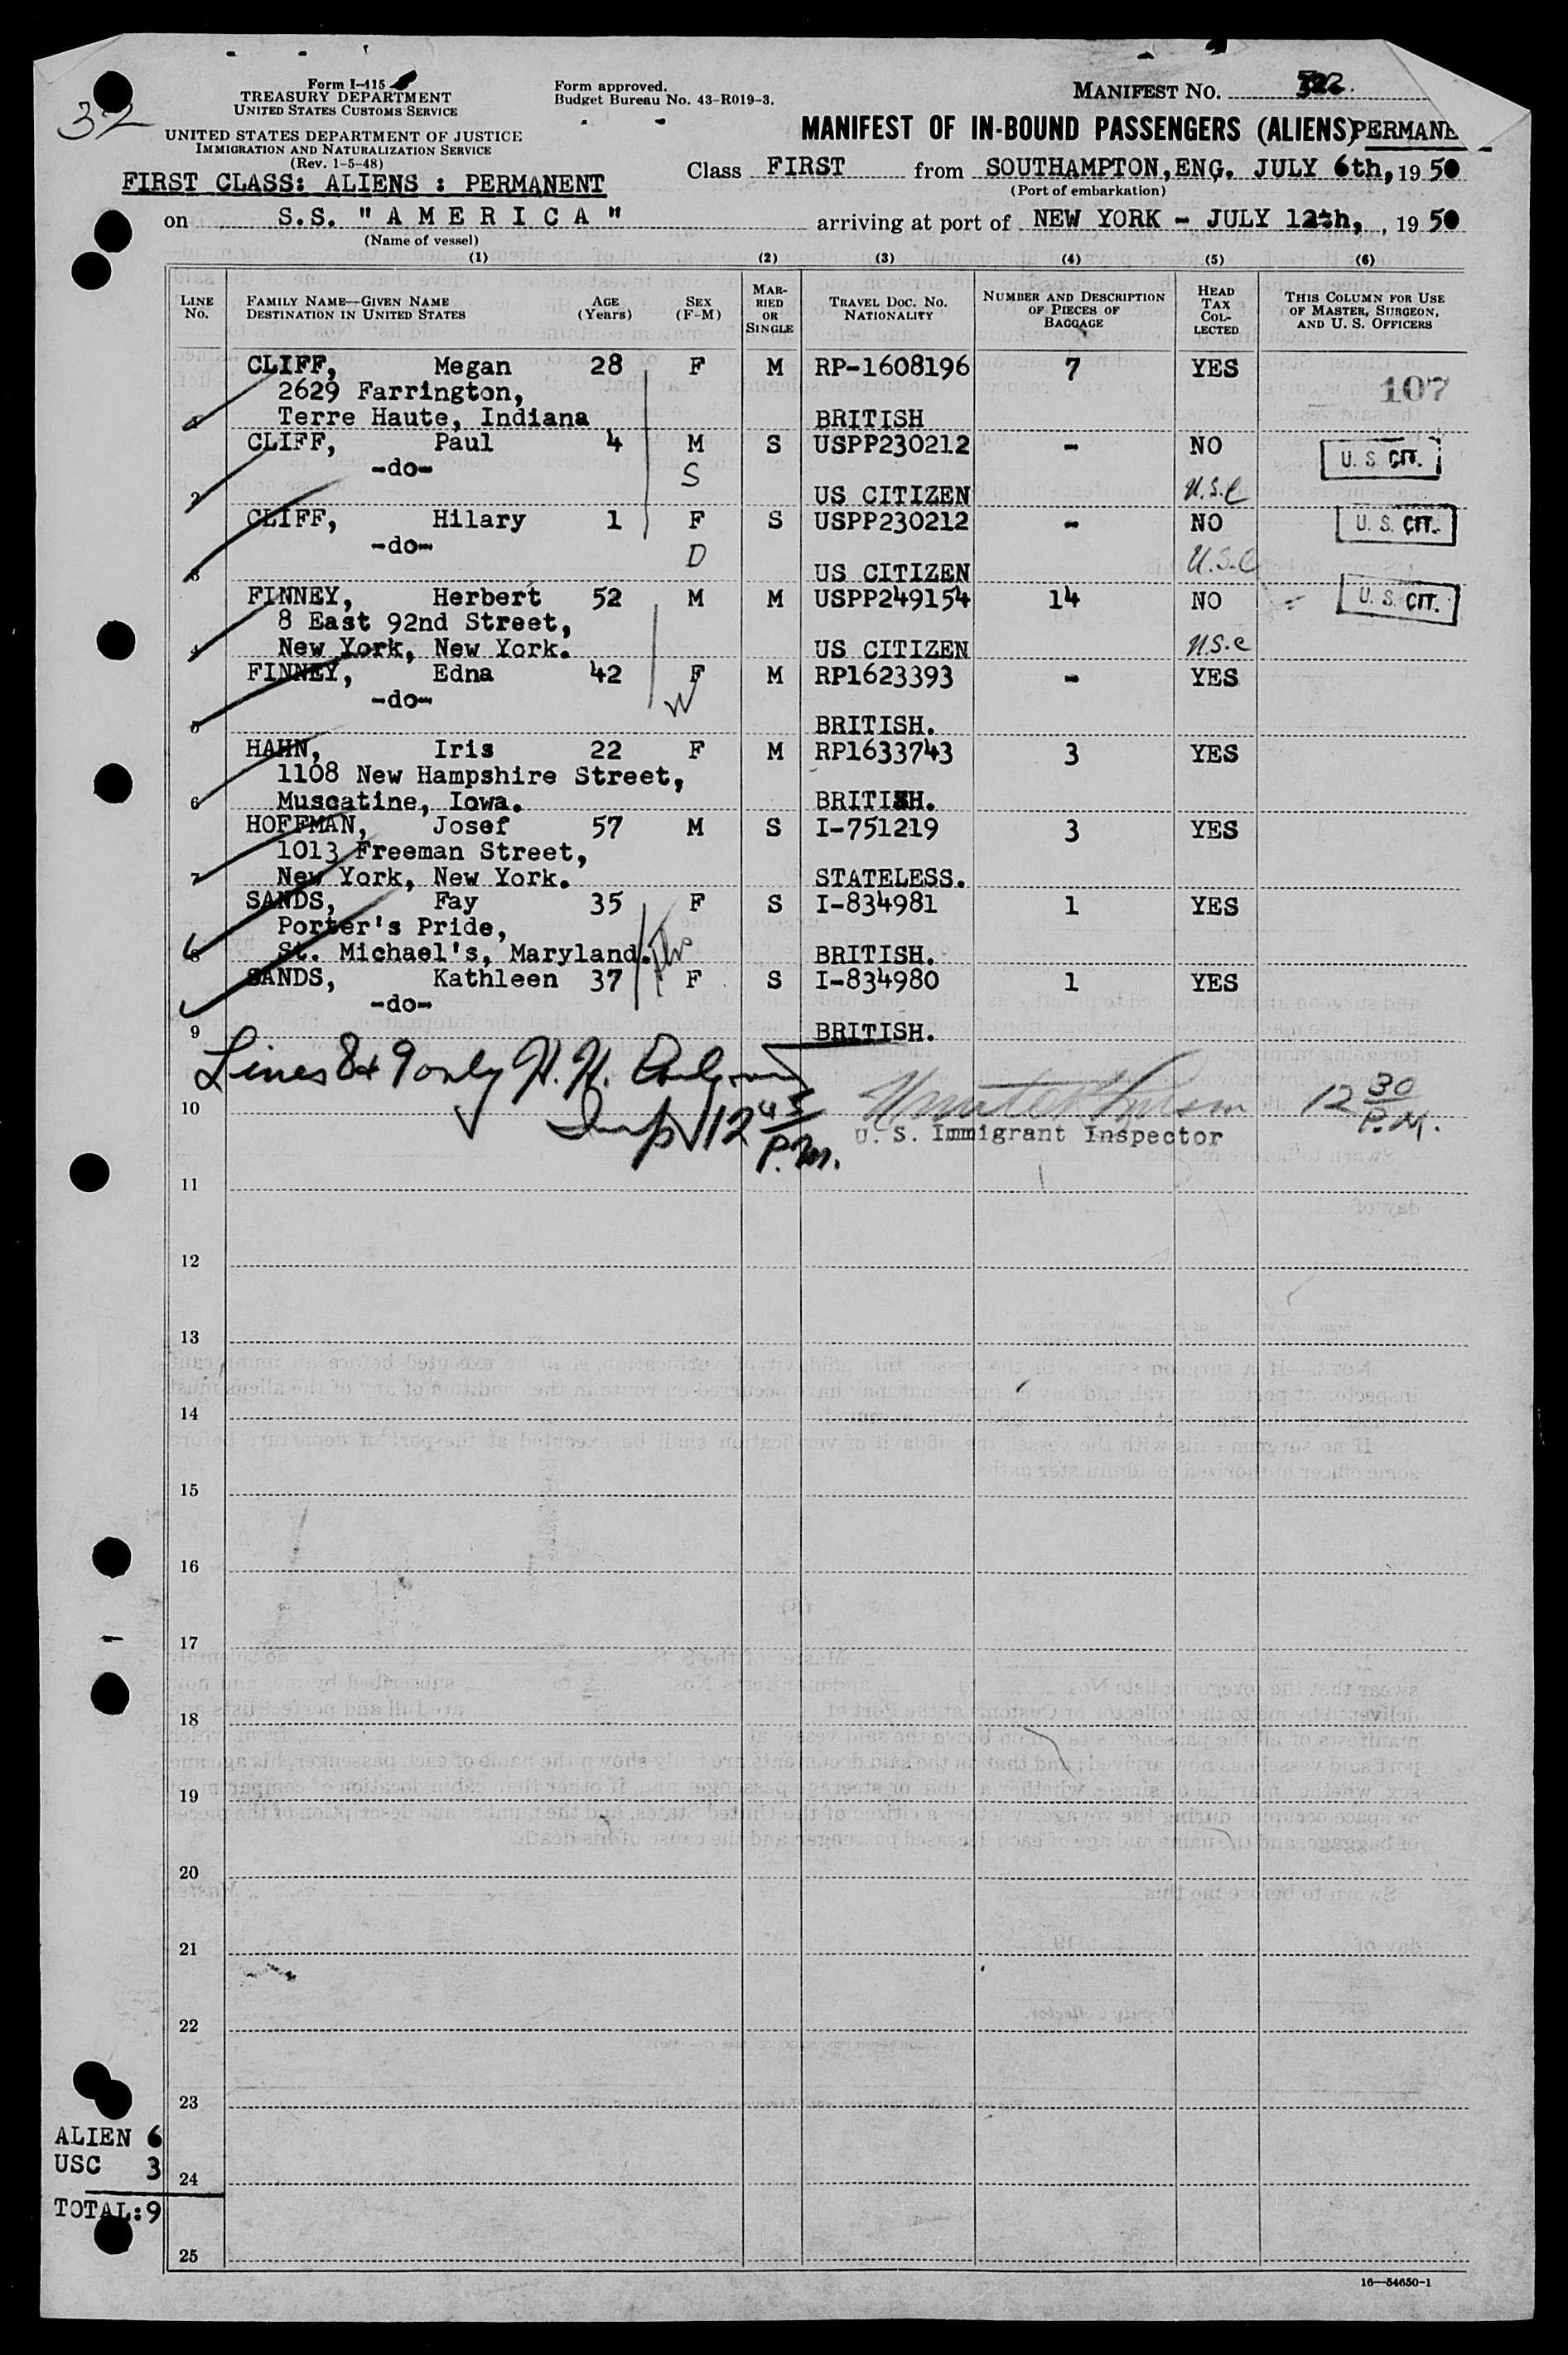 Form I-415
TREASURY DEPARTMENT
UNITED STATES CUSTOMS SERVICE
UNITED STATES DEPARTMENT OF JUSTICE
IMMIGRATION AND NATURALIZATION SERVICE
(Rev. 1-5-48)
Form approved.
Budget Bureau No. 43-R019-3.
MANIFEST NO.
32
MANIFEST OF IN-BOUND PASSENGERS (ALIENS)
FIRST CLASS: ALIENS : PERMANENT
Class FIRST from SOUTHAMPTON,ENG. JULY 6th, 1950
(Port of embarkation)
on S.S. "A M E R I C A" arriving at port of NEW YORK - JULY 12th, , 1950
(Name of vessel)
(1) (2) (3) (4) (5) (6)
LINE No. FAMILY NAME—GIVEN NAME DESTINATION IN UNITED STATES AGE (Years) SEX (F-M) MARRIED OR SINGLE TRAVEL DOC. NO. NATIONALITY NUMBER AND DESCRIPTION OF PIECES OF BAGGAGE HEAD TAX COLLECTED THIS COLUMN FOR USE OF MASTER, SURGEON, AND U. S. OFFICERS
CLIFF, Megan 28 F M RP-1608196 7 YES 107
2629 Farrington,
1 Terre Haute, Indiana BRITISH
CLIFF, Paul 4 M S USPP230212 - NO U. S. CIT.
-do- S
2 US CITIZEN U.S.C
CLIFF, Hilary 1 F S USPP230212 - NO U. S. CIT.
-do- D
3 US CITIZEN U.S.C
FINNEY, Herbert 52 M M USPP249154 14 NO U. S. CIT.
8 East 92nd Street,
4 New York, New York. US CITIZEN U.S.C
FINNEY, Edna 42 F M RP1623393 - YES
-do- W
5 BRITISH.
HAHN, Iris 22 F M RP1633743 3 YES
1108 New Hampshire Street,
6 Muscatine, Iowa. BRITISH.
HOFFMAN, Josef 57 M S I-751219 3 YES
1013 Freeman Street,
7 New York, New York. STATELESS.
SANDS, Fay 35 F S I-834981 1 YES
Porter's Pride,
8 St. Michael's, Maryland. BRITISH.
SANDS, Kathleen 37 F S I-834980 1 YES
-do-
9 BRITISH.
Lines 8+9 only H. H.
10 Insp 12 45 P.M. 12 30 P.M.
U. S. Immigrant Inspector
11
12
13
14
15
16
17
18
19
20
21
22
23
ALIEN 6
USC 3
24
TOTAL:9
25
16—54650-1